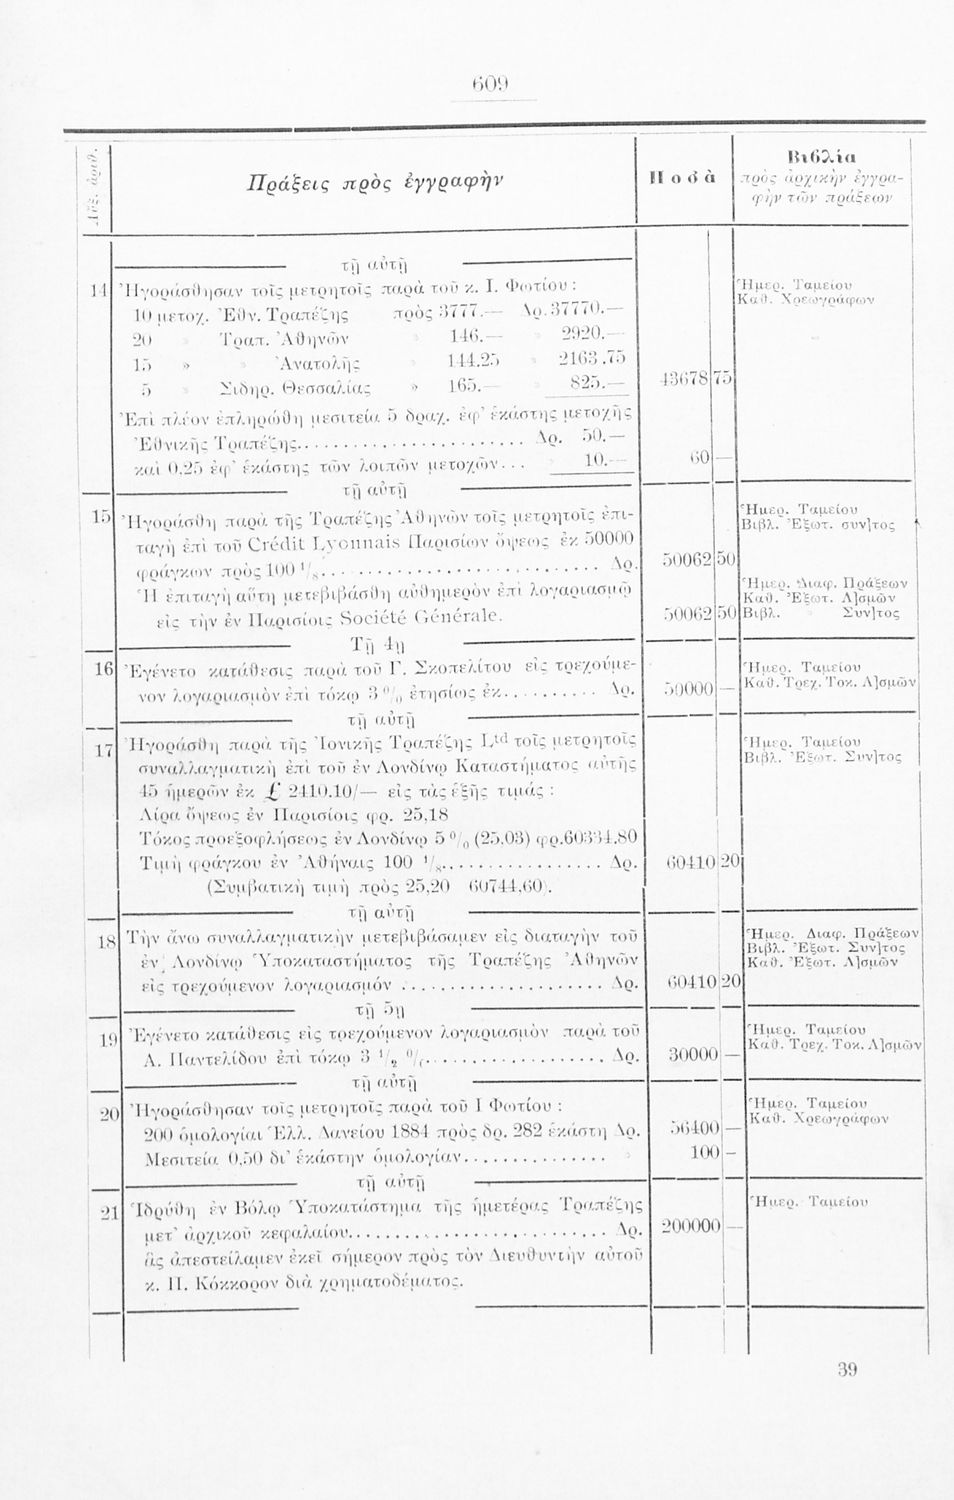 609
Αὔξ. ἀριθ.
Πράξεις πρὸς ἐγγραφὴν
Ποσὰ
Βιβλία
πρὸς ἀρχικὴν ἐγγρα-
φὴν τῶν πράξεων
τῇ αὐτῇ
14 Ἠγοράσθησαν τοῖς μετρητοῖς παρὰ τοῦ κ. Ι. Φωτίου :
Ἡμερ. Ταμείου
Καθ. Χρεωγράφων
10 μετοχ. Ἐθν. Τραπέζης πρὸς 3777.— Δρ. 37770.—
20 » Τραπ. Ἀθηνῶν 146.— » 2920.—
15 » Ἀνατολῆς 144.25 » 2163.75
5 » Σιδηρ. Θεσσαλίας » 165.— 825.— 43678 75
Ἐπὶ πλέον ἐπληρώθη μεσιτεία 5 δραχ. ἐφ' ἑκάστης μετοχῆς
Ἐθνικῆς Τραπέζης.......... Δρ. 50.—
καὶ 0.25 ἐφ' ἑκάστης τῶν λοιπῶν μετοχῶν... » 10.— 60 —
τῇ αὐτῇ
15 Ἠγοράσθη παρὰ τῆς Τραπέζης Ἀθηνῶν τοῖς μετρητοῖς ἐπι-
ταγὴ ἐπὶ τοῦ Crédit Lyonnais Παρισίων ὄψεως ἐκ 50000
φράγκων πρὸς 100 1/8.......... Δρ. 50062 50
Ἡμερ. Ταμείου
Βιβλ. Ἐξωτ. συν]τος
Ἡ ἐπιταγὴ αὕτη μετεβιβάσθη αὐθημερὸν ἐπὶ λογαριασμῷ
εἰς τὴν ἐν Παρισίοις Société Générale. 50062 50
Ἡμερ. Διαφ. Πράξεων
Καθ. Ἐξωτ. Λ]σμῶν
Βιβλ. Συν]τος
Τῇ 4ῃ
16 Ἐγένετο κατάθεσις παρὰ τοῦ Γ. Σκοπελίτου εἰς τρεχούμε-
νον λογαριασμὸν ἐπὶ τόκῳ 3 % ἐτησίως ἐκ.......... Δρ. 50000 —
Ἡμερ. Ταμείου
Καθ. Τρεχ. Τοκ. Λ]σμῶν
τῇ αὐτῇ
17 Ἠγοράσθη παρὰ τῆς Ἰονικῆς Τραπέζης Ltd τοῖς μετρητοῖς
συναλλαγματικὴ ἐπὶ τοῦ ἐν Λονδίνῳ Καταστήματος αὐτῆς
45 ἡμερῶν ἐκ £ 2410.10/— εἰς τὰς ἑξῆς τιμάς :
Λίρα ὄψεως ἐν Παρισίοις φρ. 25,18
Τόκος προεξοφλήσεως ἐν Λονδίνῳ 5 % (25.03) φρ. 60334.80
Τιμὴ φράγκου ἐν Ἀθήναις 100 1/8.......... Δρ. 60410 20
(Συμβατικὴ τιμὴ πρὸς 25,20 60744,60).
Ἡμερ. Ταμείου
Βιβλ. Ἐξωτ. Συν]τος
τῇ αὐτῇ
18 Τὴν ἄνω συναλλαγματικὴν μετεβιβάσαμεν εἰς διαταγὴν τοῦ
ἐν Λονδίνῳ Ὑποκαταστήματος τῆς Τραπέζης Ἀθηνῶν
εἰς τρεχούμενον λογαριασμόν .......... Δρ. 60410 20
Ἡμερ. Διαφ. Πράξεων
Βιβλ. Ἐξωτ. Συν]τος
Καθ. Ἐξωτ. Λ]σμῶν
τῇ 5ῃ
19 Ἐγένετο κατάθεσις εἰς τρεχούμενον λογαριασμὸν παρὰ τοῦ
Α. Παντελίδου ἐπὶ τόκῳ 3 1/2 %.......... Δρ. 30000 —
Ἡμερ. Ταμείου
Καθ. Τρεχ. Τοκ. Λ]σμῶν
τῇ αὐτῇ
20 Ἠγοράσθησαν τοῖς μετρητοῖς παρὰ τοῦ Ι Φωτίου :
200 ὁμολογίαι Ἑλλ. Δανείου 1884 πρὸς δρ. 282 ἑκάστη Δρ. 56400 —
Μεσιτεία 0,50 δι' ἑκάστην ὁμολογίαν.......... » 100 -
Ἡμερ. Ταμείου
Καθ. Χρεωγράφων
τῇ αὐτῇ
21 Ἱδρύθη ἐν Βόλῳ Ὑποκατάστημα τῆς ἡμετέρας Τραπέζης
μετ' ἀρχικοῦ κεφαλαίου.......... Δρ. 200000 —
ἃς ἀπεστείλαμεν ἐκεῖ σήμερον πρὸς τὸν Διευθυντὴν αὐτοῦ
κ. Π. Κόκκορον διὰ χρηματοδέματος.
Ἡμερ. Ταμείου
39